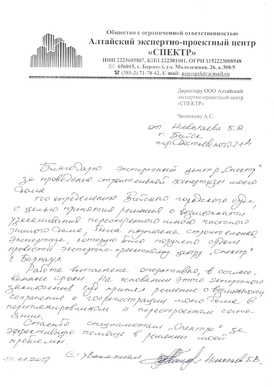 Общество с ограниченной ответственностью
Алтайский экспертно-проектный центр
«СПЕКТР»
ИНН 2223605807, КПП 222301001, ОГРН
656015, г. Барнаул, ул. Молодежная, 26, к.308/5
(385-2) 71-78-42, E-mail: aepcspektr@mail.ru
Директору ООО Алтайский
экспертно-проектный центр
«СПЕКТР»
Чеснокову А.С.
от Б.В.
г. Бийск
Благодарю экспертный центр „Спектр"
за проведение строительной экспертизы моего
дома
по определению Бийского городского суда,
с целью принятия решения о возможности
узаконивания перестроенного
жилого дома, была назначена строительная
экспертиза, которую было поручено судом
провести экспертно-проектному центру „Спектр"
г. Барнаул
Работа выполнена оперативно, в
сроки. На основании этого экспертного
заключения суд принял решение о возможности
сохранения и моего дома в
и перестроенном состо-
янии.
Спасибо специалистам „Спектра" за
эффективную помощь в решении моей
проблемы.
.11.2017 С уважением